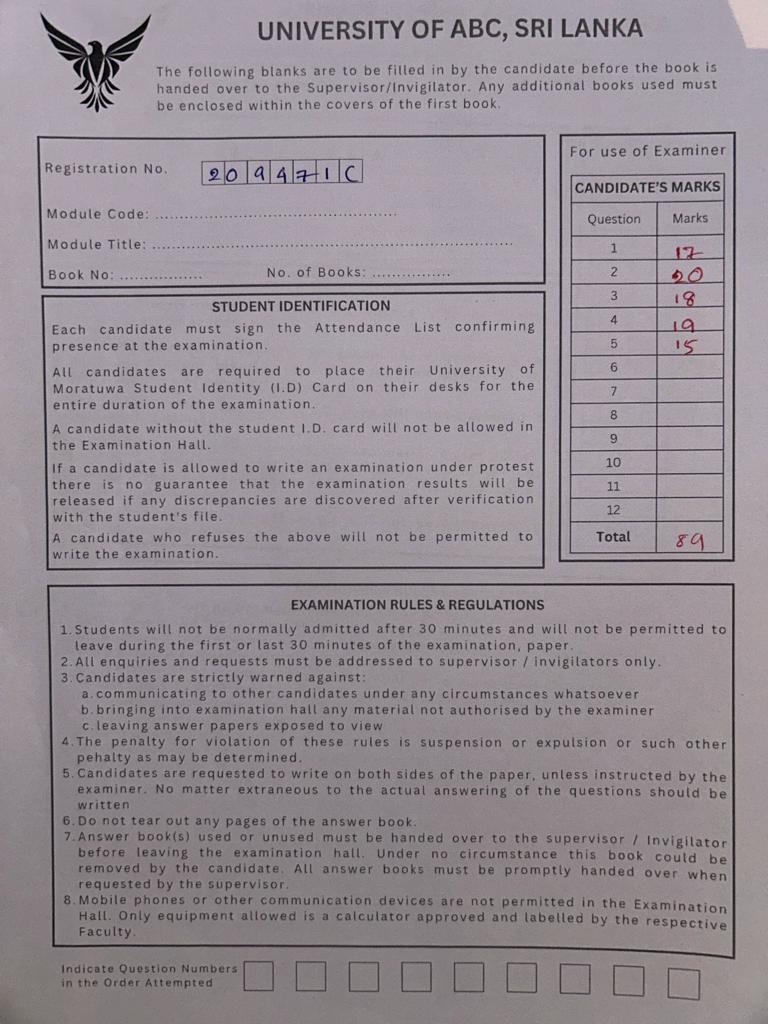 UNIVERSITY OF ABC, SRI LANKA
The following blanks are to be filled in by the candidate before the book is
handed over to the Supervisor/Invigilator. Any additional books used must
be enclosed within the covers of the first book.
Registration No. 209471C
Module Code: ................................................
Module Title: .......................................................................
Book No: ................ No. of Books: ...............
STUDENT IDENTIFICATION
Each candidate must sign the Attendance List confirming
presence at the examination.
All candidates are required to place their University of
Moratuwa Student Identity (I.D) Card on their desks for the
entire duration of the examination.
A candidate without the student I.D. card will not be allowed in
the Examination Hall.
If a candidate is allowed to write an examination under protest
there is no guarantee that the examination results will be
released if any discrepancies are discovered after verification
with the student's file.
A candidate who refuses the above will not be permitted to
write the examination.
For use of Examiner
CANDIDATE'S MARKS
Question Marks
1 17
2 20
3 18
4 19
5 15
6
7
8
9
10
11
12
Total 89
EXAMINATION RULES & REGULATIONS
1. Students will not be normally admitted after 30 minutes and will not be permitted to
leave during the first or last 30 minutes of the examination, paper.
2. All enquiries and requests must be addressed to supervisor / invigilators only.
3. Candidates are strictly warned against:
a. communicating to other candidates under any circumstances whatsoever
b. bringing into examination hall any material not authorised by the examiner
c. leaving answer papers exposed to view
4. The penalty for violation of these rules is suspension or expulsion or such other
pehalty as may be determined.
5. Candidates are requested to write on both sides of the paper, unless instructed by the
examiner. No matter extraneous to the actual answering of the questions should be
written
6. Do not tear out any pages of the answer book.
7. Answer book(s) used or unused must be handed over to the supervisor / Invigilator
before leaving the examination hall. Under no circumstance this book could be
removed by the candidate. All answer books must be promptly handed over when
requested by the supervisor.
8. Mobile phones or other communication devices are not permitted in the Examination
Hall. Only equipment allowed is a calculator approved and labelled by the respective
Faculty.
Indicate Question Numbers
in the Order Attempted